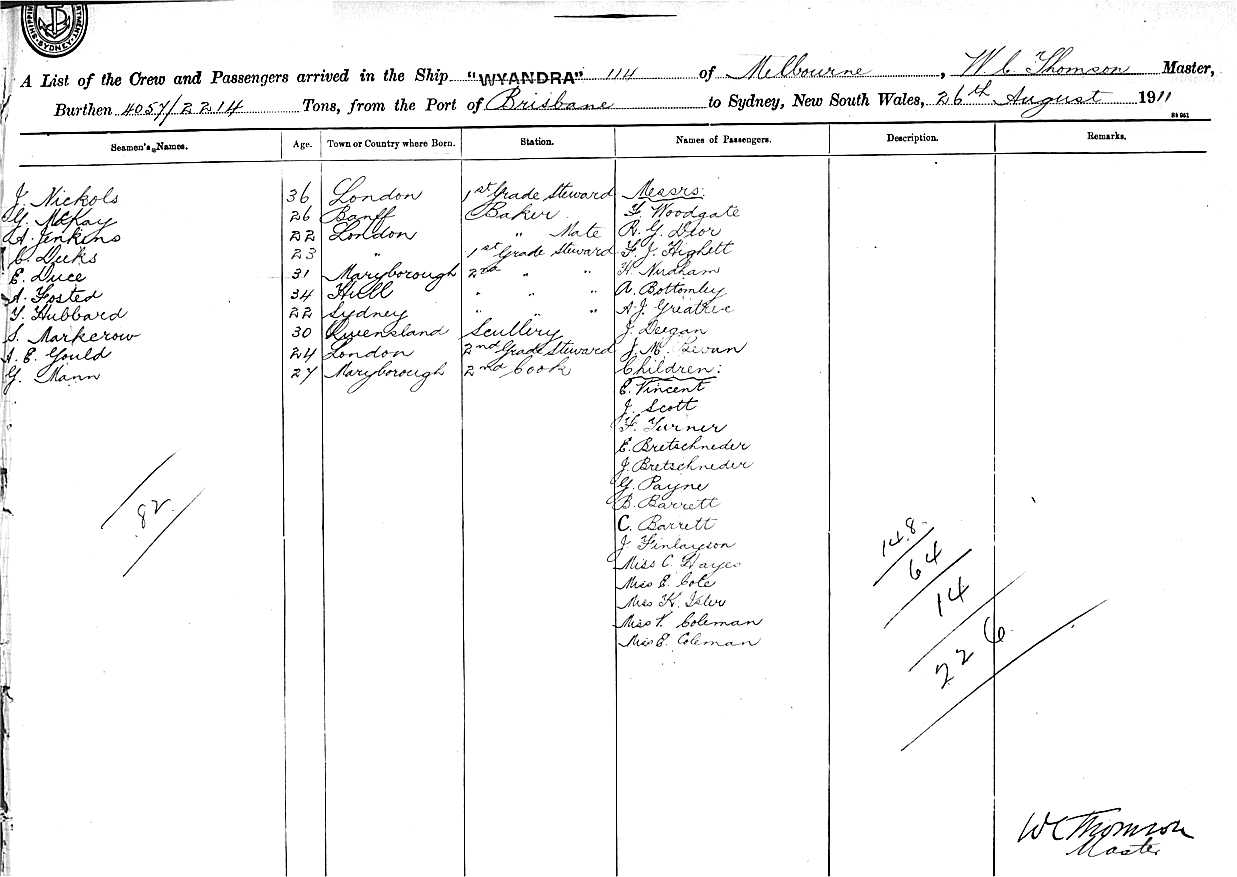 SYDNEY
A List of the Crew and Passengers arrived in the Ship "WYANDRA" 114 of Melbourne, W C Thomson Master,
Burthen 4057/2214 Tons, from the Port of Brisbane to Sydney, New South Wales, 26th August 1911
Seamen's Names. Age. Town or Country where Born. Station. Names of Passengers. Description. Remarks.
J. Nickols 36 London 1st Grade Steward Messrs:
G. McKay 26 Banff Baker F. Woodgate
A. Jenkins 22 London " Mate R. G. Dior
C. Deeks 23 " 1st Grade Steward F. J. Highett
E. Duce 31 Maryborough 2nd " " H. Nudham
A. Fosted 34 Hull " " " A. Bottomley
T. Hubbard 22 Sydney " " " A. J. Greatrec
S. Markerow 30 Queensland Scullery J. Deegan
A. E. Gould 24 London 2nd Grade Steward J. M. Bevan
G. Mann 27 Maryborough 2nd Cook Children:
E. Vincent
J. Scott
F. Turner
E. Bretschneder
J. Bretschneder
G. Payne
B. Barrett
C. Barrett
J Finlayson
Miss C. Hayes
Miss E. Cole
Miss K.
Miss V. Coleman
Miss E. Coleman
82
148
64
14
226
W C Thomson
Master